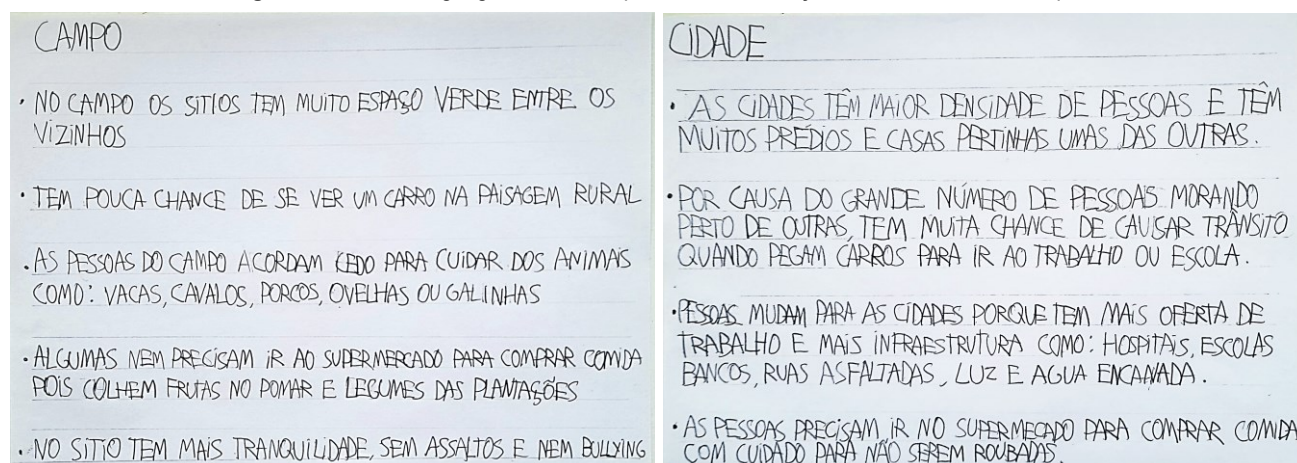 CAMPO
• NO CAMPO OS SITIOS TEM MUITO ESPAÇO VERDE ENTRE OS
VIZINHOS
• TEM POUCA CHANCE DE SE VER UM CARRO NA PAISAGEM RURAL
• AS PESSOAS DO CAMPO ACORDAM CEDO PARA CUIDAR DOS ANIMAIS
COMO: VACAS, CAVALOS, PORCOS, OVELHAS OU GALINHAS
• ALGUMAS NEM PRECISAM IR AO SUPERMERCADO PARA COMPRAR COMIDA
POIS COLHEM FRUTAS NO POMAR E LEGUMES DAS PLANTAÇÕES
• NO SITIO TEM MAIS TRANQUILIDADE, SEM ASSALTOS E NEM BULLYING
CIDADE
• AS CIDADES TÊM MAIOR DENSIDADE DE PESSOAS E TÊM
MUITOS PRÉDIOS E CASAS PERTINHAS UMAS DAS OUTRAS.
• POR CAUSA DO GRANDE NÚMERO DE PESSOAS MORANDO
PERTO DE OUTRAS, TEM MUITA CHANCE DE CAUSAR TRÂNSITO
QUANDO PEGAM CARROS PARA IR AO TRABALHO OU ESCOLA.
• PESSOAS MUDAM PARA AS CIDADES PORQUE TEM MAIS OFERTA DE
TRABALHO E MAIS INFRAESTRUTURA COMO: HOSPITAIS, ESCOLAS
BANCOS, RUAS ASFALTADAS, LUZ E AGUA ENCANADA.
• AS PESSOAS PRECISAM IR NO SUPERMECADO PARA COMPRAR COMIDA
COM CUIDADO PARA NÃO SEREM ROUBADAS.